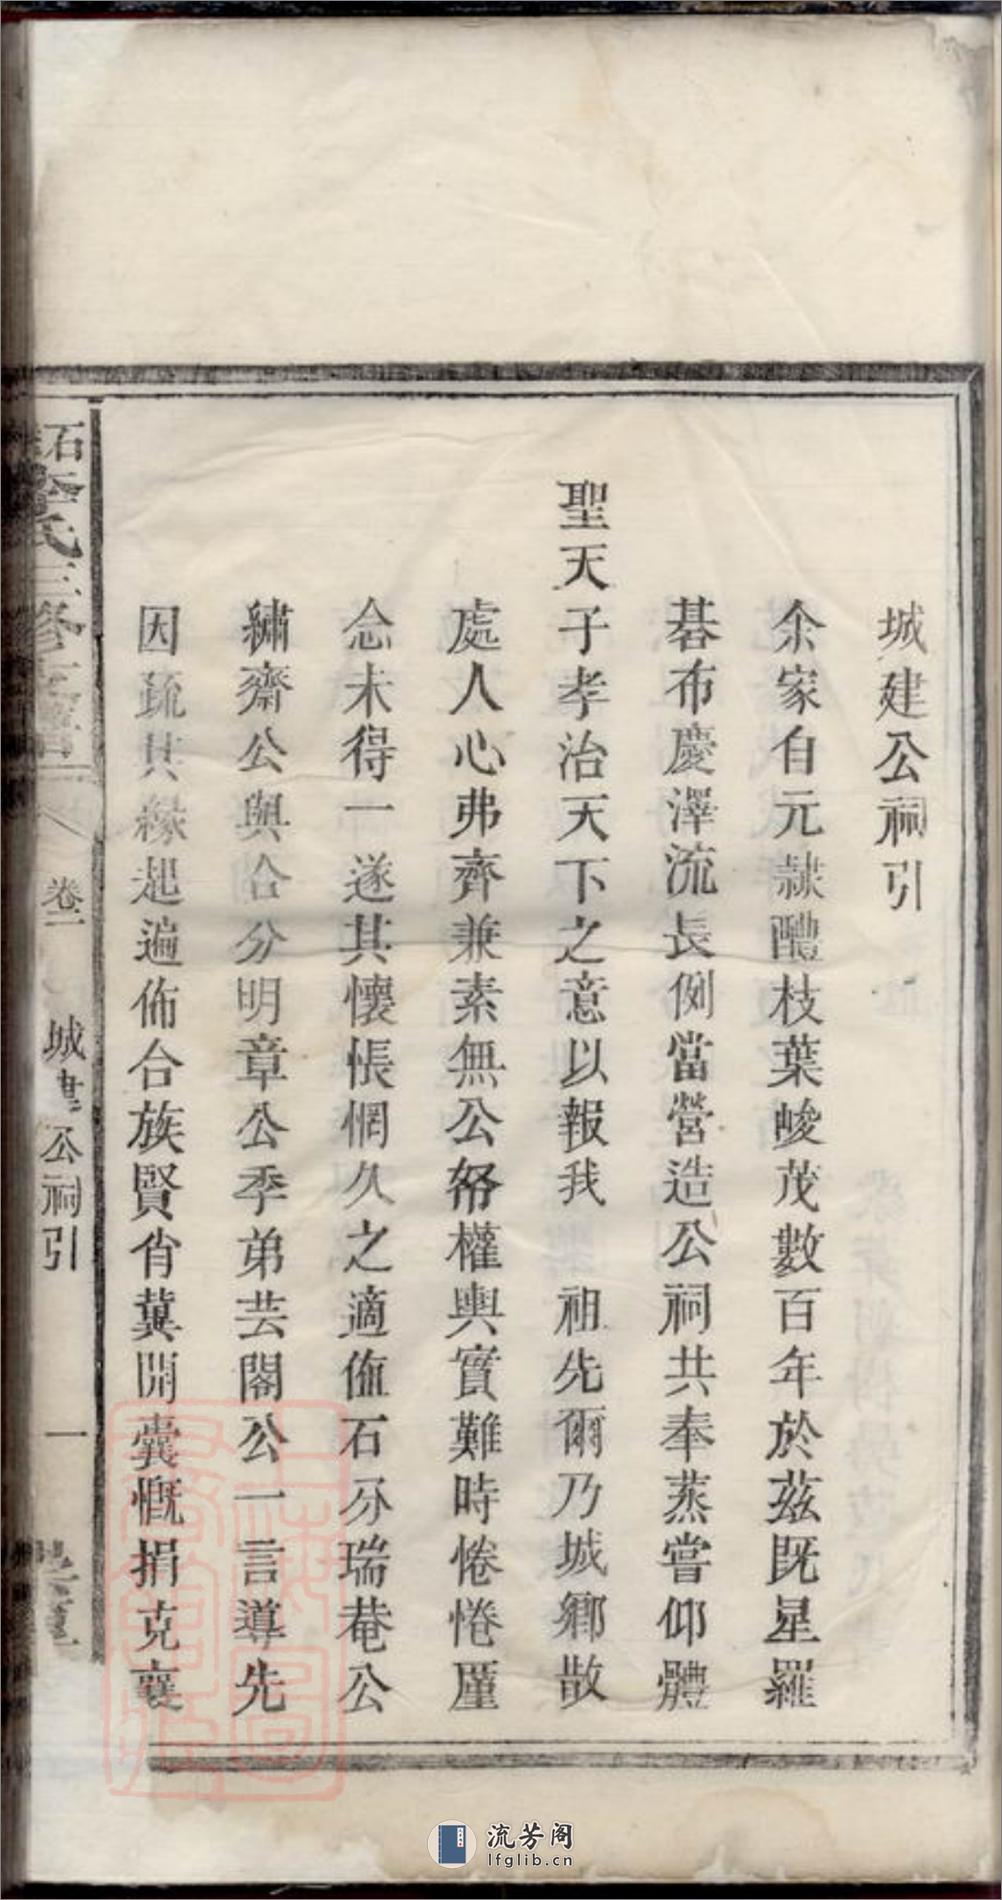 城建公祠引
余家自元隸醴枝葉峻茂數百年於茲既星羅
碁布慶澤流長例當營造公祠共奉蒸嘗仰體
聖天子孝治天下之意以報我 祖先爾乃城鄉散
處人心弗齊兼素無公帑權輿實難時惓惓厪
念未得一遂其懷悵惘久之適伷石分瑞菴公
繡齋公與合分明章公季弟芸閣公一言導先
因疏其緣起遍佈合族賢肯冀開囊慨捐克襄
石 氏三修 卷一 城建公祠引 一
上海圖書館藏
流芳阁
lfglib.cn